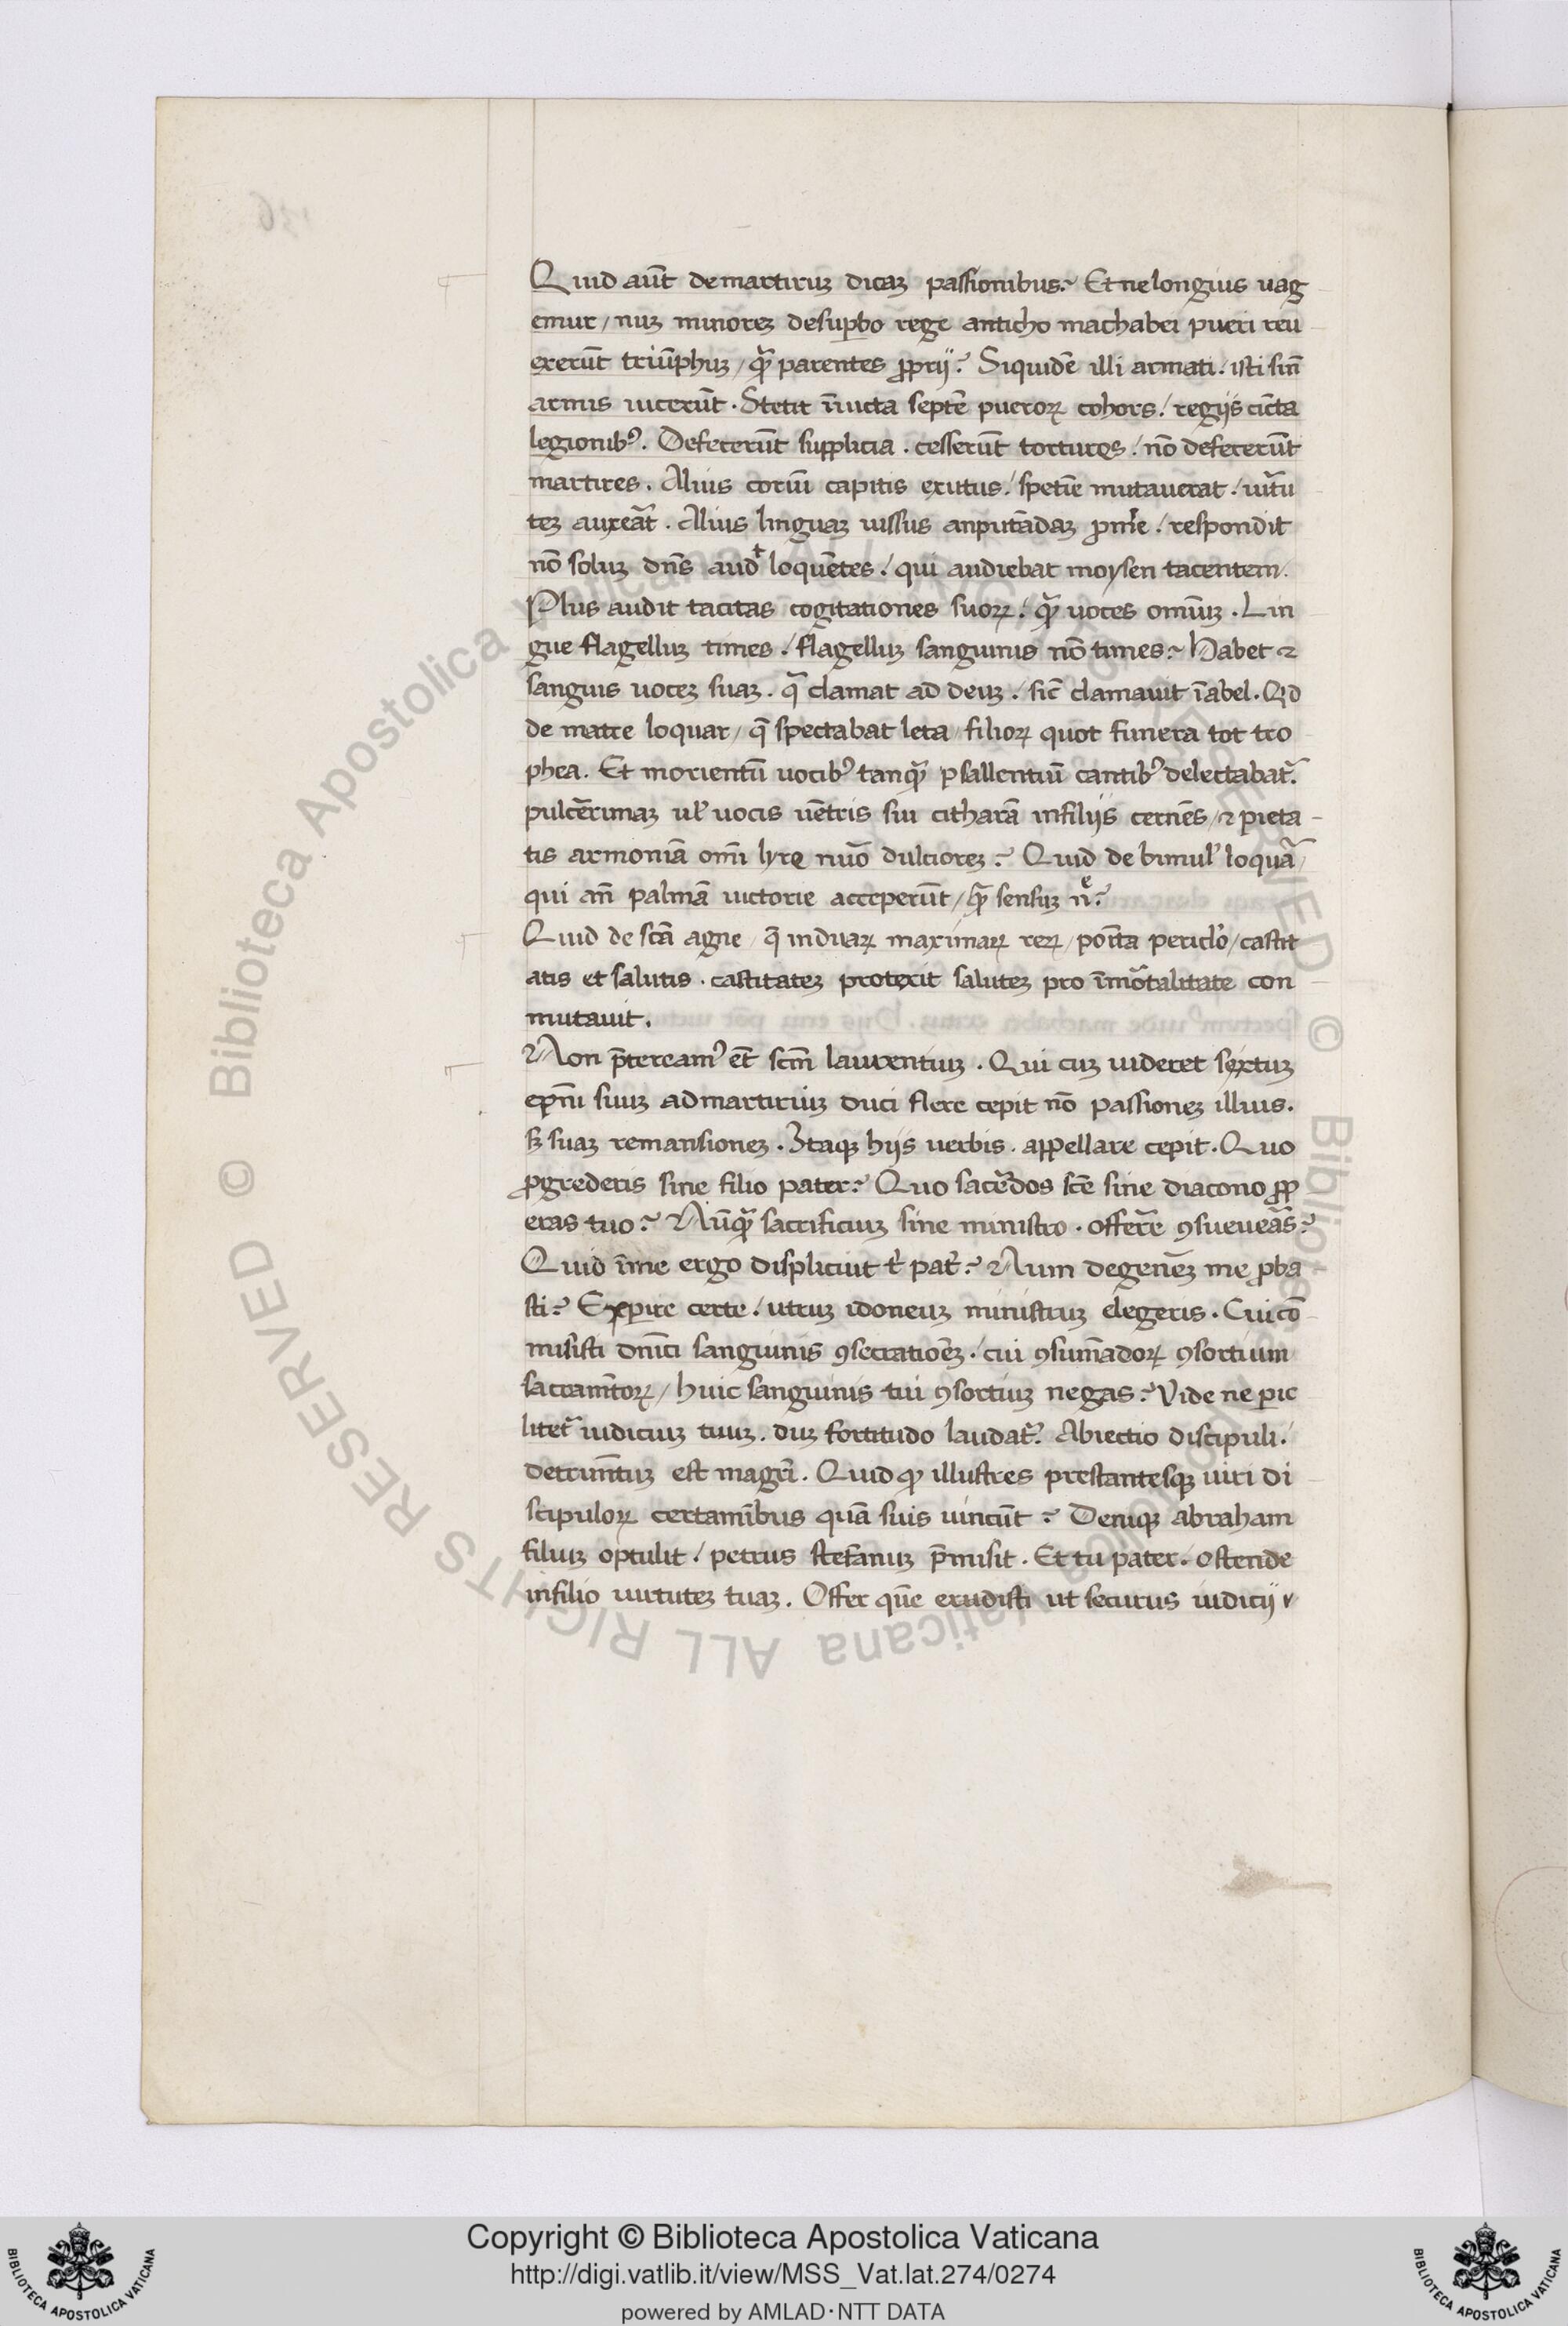 Quid aūt de martiruꝫ dicaꝫ passionibus? Et ne longius uag
emur / nuꝫ minoreꝫ de suꝑbo rege anticho machabei pueri reu
exerūt triūphuꝫ / qᷓ parentes ꝓprij? Siquidē illi armati / isti sin̄
armis uicerūt. Stetit īuicta septē pueroꝝ cohors / regijs cīcta
legionibꝰ. Defecerūt supplicia. cesserūt tortures / nō defecerūt
martires. Alius coriū capitis exutus / spetiē mutauerat / uirtu
teꝫ auxeāt. Alius linguaꝫ iussus anputādaꝫ ꝓmē / respondit
nō soluꝫ dn̄s audᵗ loquētes / qui audiebat moysen tacentem.
Plus audit tacitas cogitationes suoꝝ / qᷓ uoces omīuꝫ. Lin
gue flagelluꝫ times / flagelluꝫ sanguinis nō times? Habet ⁊
sanguis uoceꝫ suaꝫ. qᷓ clamat ad deuꝫ / sic̄ clamauit ī abel. Qd
de matre loquar / q̄ spectabat leta / filioꝝ quot funera tot tro
phea. Et morientū uocibꝰ tanqᷓ psallentiū cantibꝰ delectabatᷓ.
pulcērimaꝫ ul̓ uocis uētris sui citharā in filijs cernēs / ⁊ pieta
tis armoniā omī lyrę nūo dulcioreꝫ? Quid de bimul̓ loquā /
qui an̄ palmā uictorie acceperūt / qᷓ sensuꝫ nᵉ?
Quid de sc̄a agne / q̄ in duaꝝ maximaꝝ reꝝ / poīta periclo / castit
atis et salutis. castitateꝫ protexit saluteꝫ pro īmōtalitate con
mutauit.
Non p̄tereamꝰ et̄ sc̄m laurentiuꝫ. Qui cuꝫ uideret sextuꝫ
ep̄m suuꝫ ad martiriuꝫ duci flere cepit nō passioneꝫ illius.
sꝫ suaꝫ remansioneꝫ. Itaqꝫ hijs uerbis. appellare cepit. Quo
ꝓgrederis sine filio pater? Quo sacēdos sc̄e sine diacono ꝓp
eras tuo? Nūqᷓ sacrificiuꝫ sine ministro. offerre ꝯsueueās?
Quid ī me ergo displicuit tⁱ pat̓? Num degenēꝫ me ꝓba
sti? Expire certe / utruꝫ idoneuꝫ ministruꝫ elegeris. Cui cō
misisti dn̄ici sanguinis ꝯsecratioēꝫ / cui ꝯsumādoꝝ ꝯsortium
sacramn̄toꝝ / huic sanguinis tui ꝯsortiuꝫ negas? Vide ne ꝑic
litetᷓ iudiciuꝫ tuuꝫ. duꝫ fortitudo laudatᷓ. Abiectio discipuli /
detrimn̄tuꝫ est magr̄i. Quid qꝫ illustres prestantesqꝫ uiri di
scipuloꝝ certamībus quā suis uincūt? Deniqꝫ abraham
filiuꝫ optulit / petrus stefanuꝫ p̄misit. Et tu pater / ostende
in filio uirtuteꝫ tuaꝫ. Offer quē erudisti ut securus iudicij v
Copyright © Biblioteca Apostolica Vaticana
http://digi.vatlib.it/view/MSS_Vat.lat.274/0274
powered by AMLAD·NTT DATA